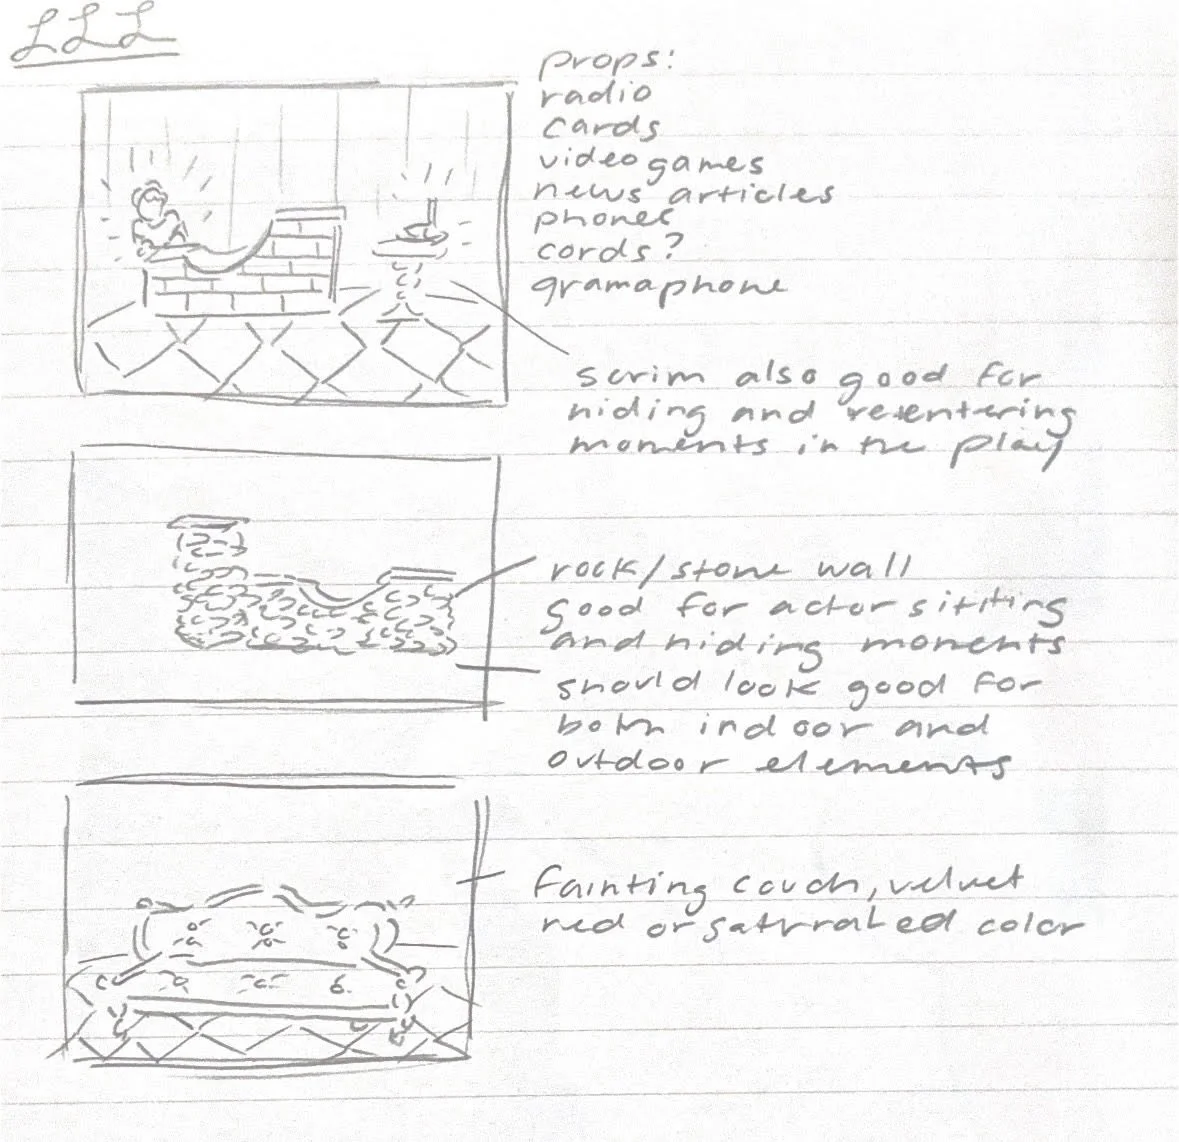 LLL
props:
radio
cards
video games
news articles
phones
cords?
gramaphone
scrim also good for
hiding and reentering
moments in the play
rock/stone wall
good for actor sititing
and hiding moments
should look good for
both indoor and
outdoor elements
fainting couch, velvet
red or satrrated color